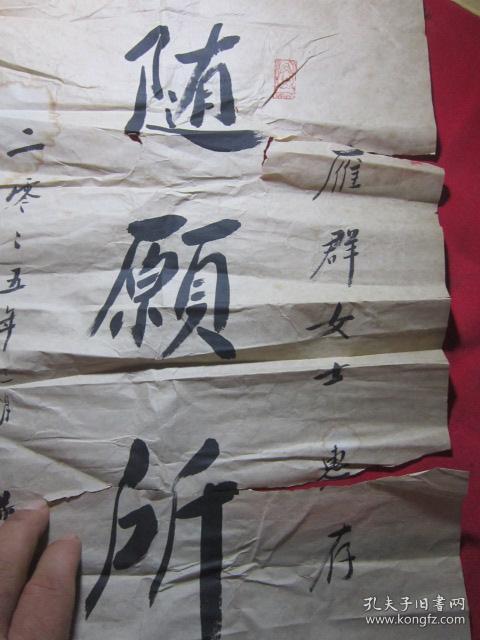 雁群女士惠存
随願所
二零〻五年
月
孔夫子旧书网
www.kongfz.com